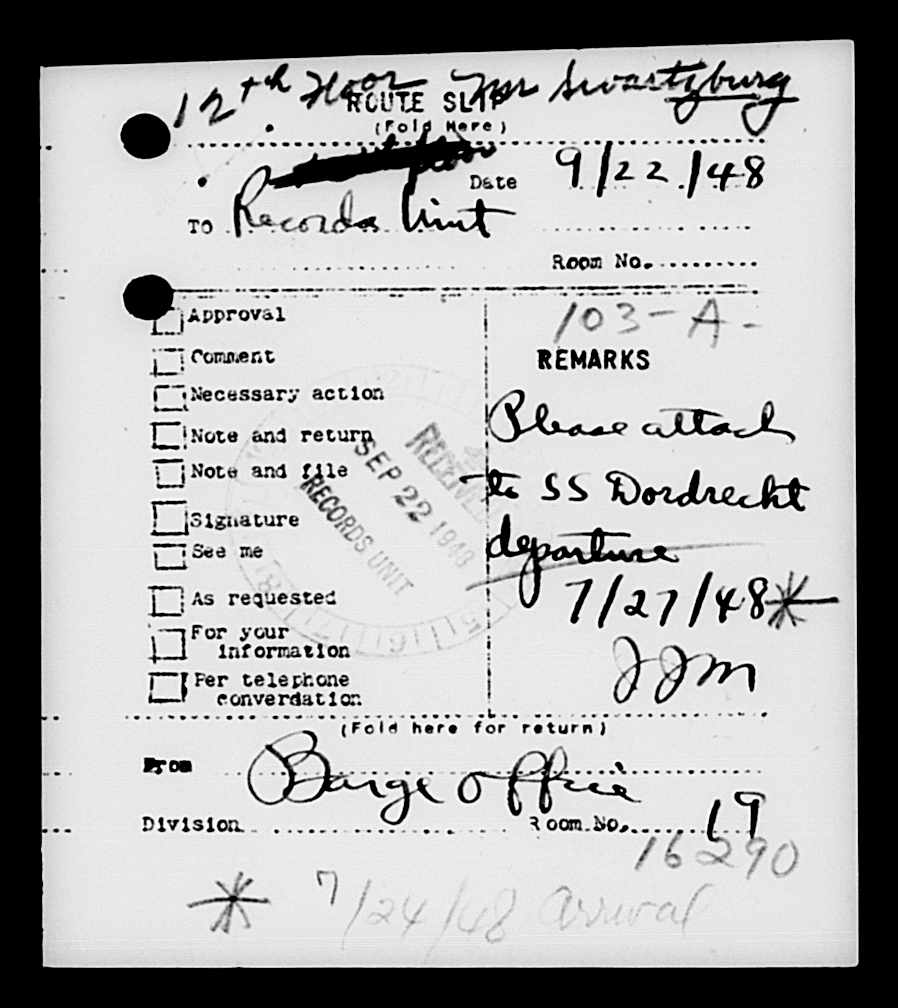 12th Floor Mr Swartzburg
ROUTE SLIP
(Fold Here)
Date 9/22/48
TO Records Unit
Room No.
103-A-
Approval
REMARKS
Comment
Necessary action
Note and return
Note and file
Signature
See me
As requested
For your
information
Per telephone
converdation
Please attach
to SS Dordrecht
departure
7/27/48*
JJM
RECEIVED
SEP 22 1948
RECORDS UNIT
(Fold here for return)
From Barge Office
Division Room No. 19
16290
* 7/24/48 arrival